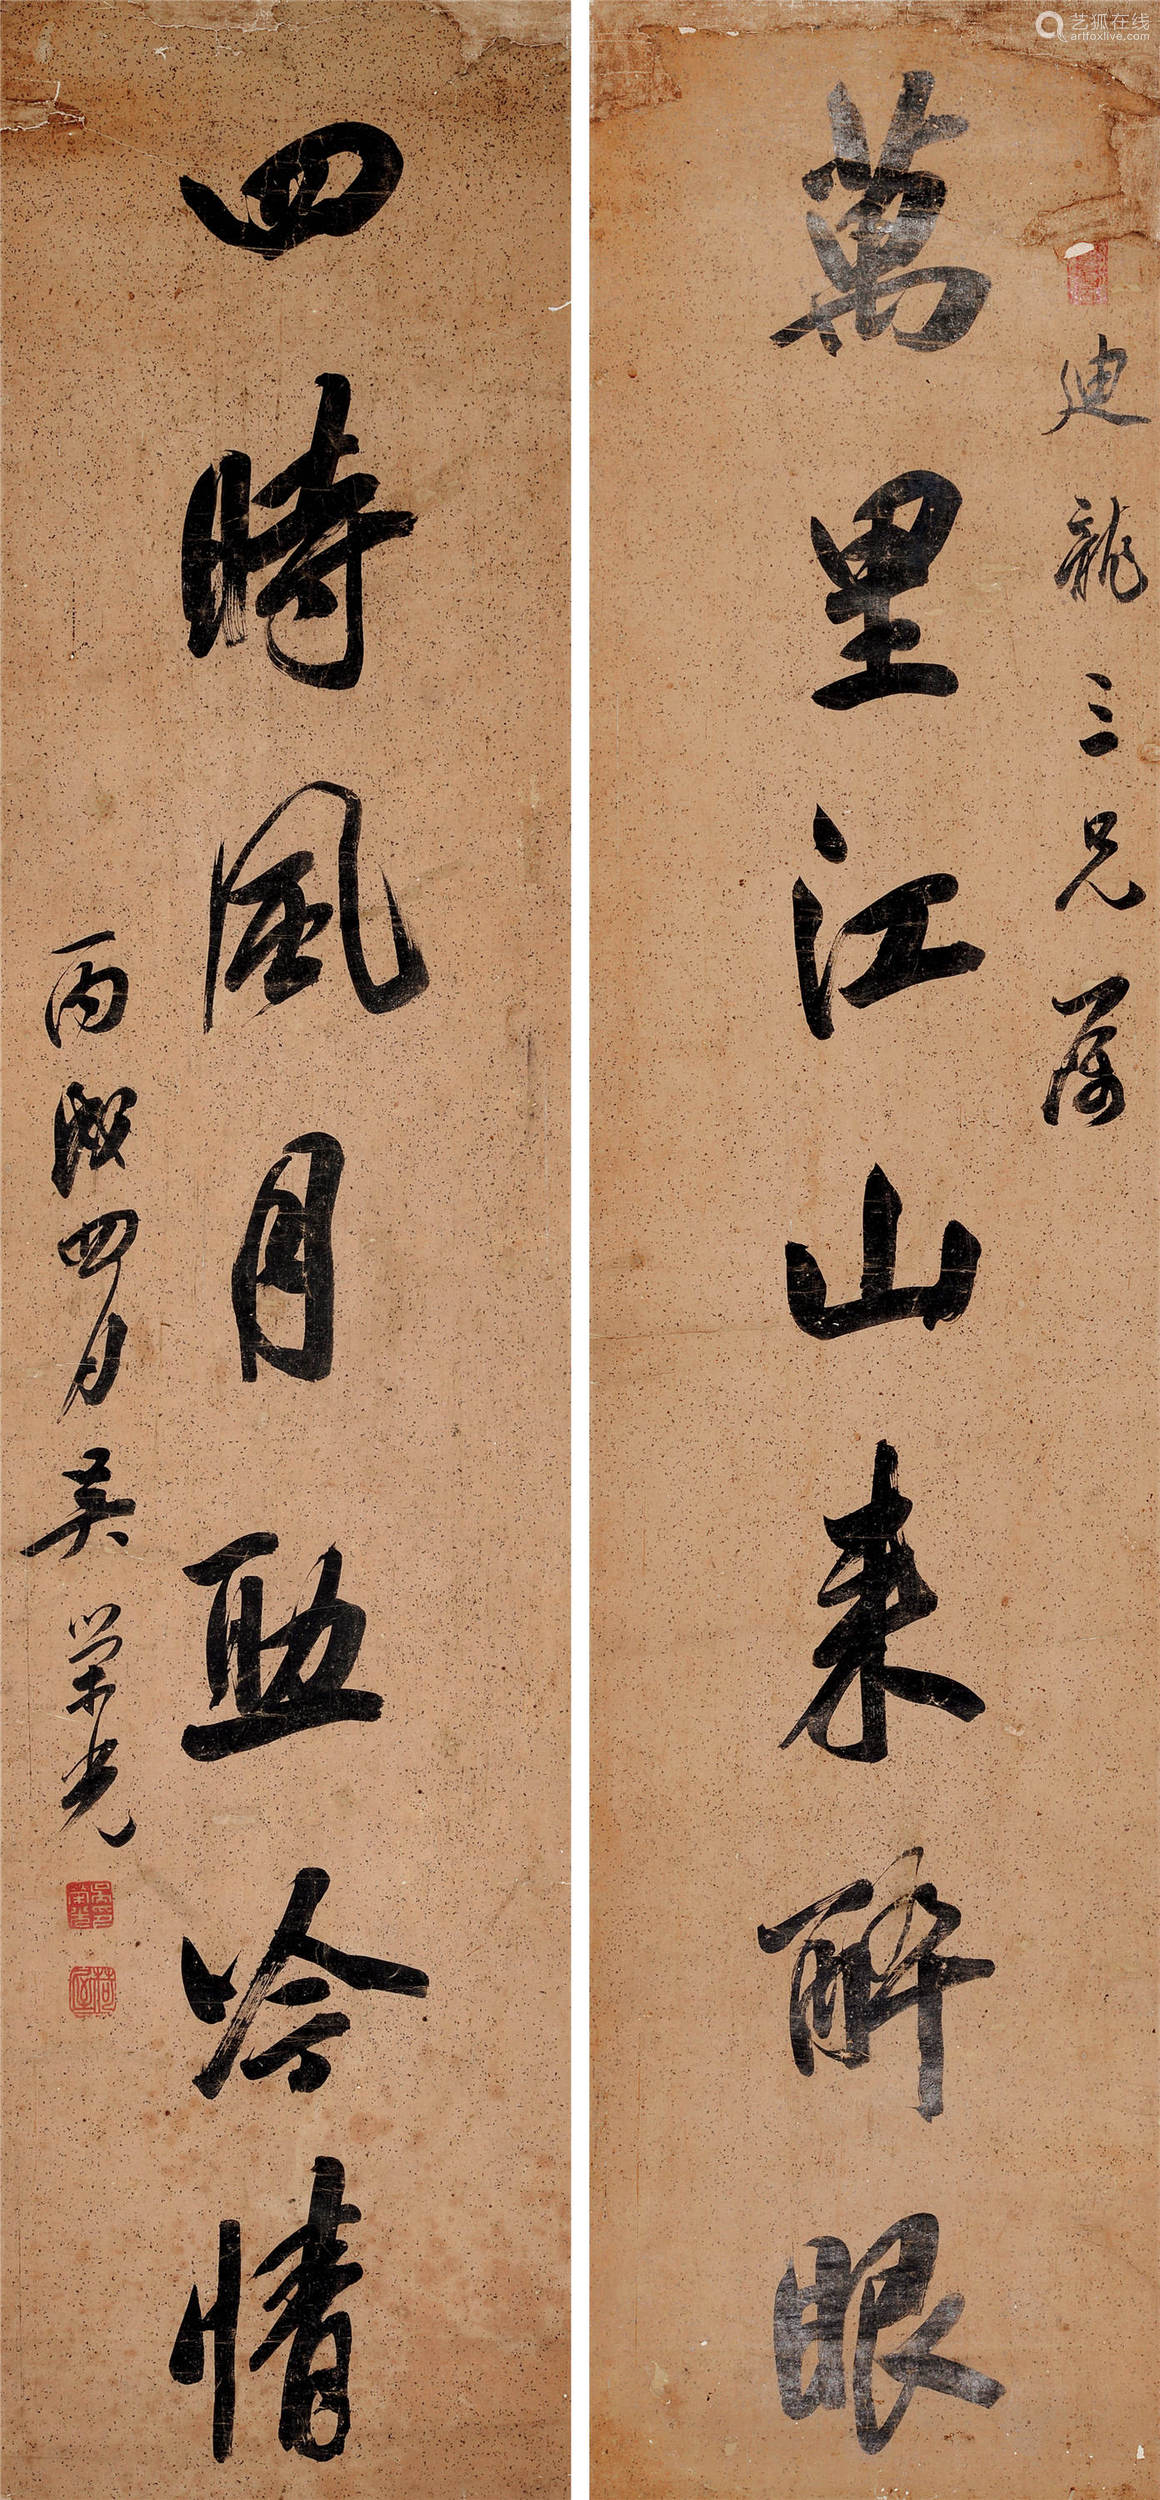 迪龍三兄屬
萬里江山来醉眼
四時風月助吟情
丙戌四月吴榮光
艺狐在线
artfoxlive.com